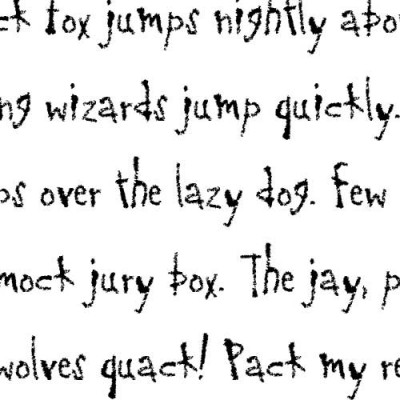 ck fox jumps nightly abo
ng wizards jump quickly.
ps over the lazy dog. Few
mock jury box. The jay, p
wolves quack! Pack my re